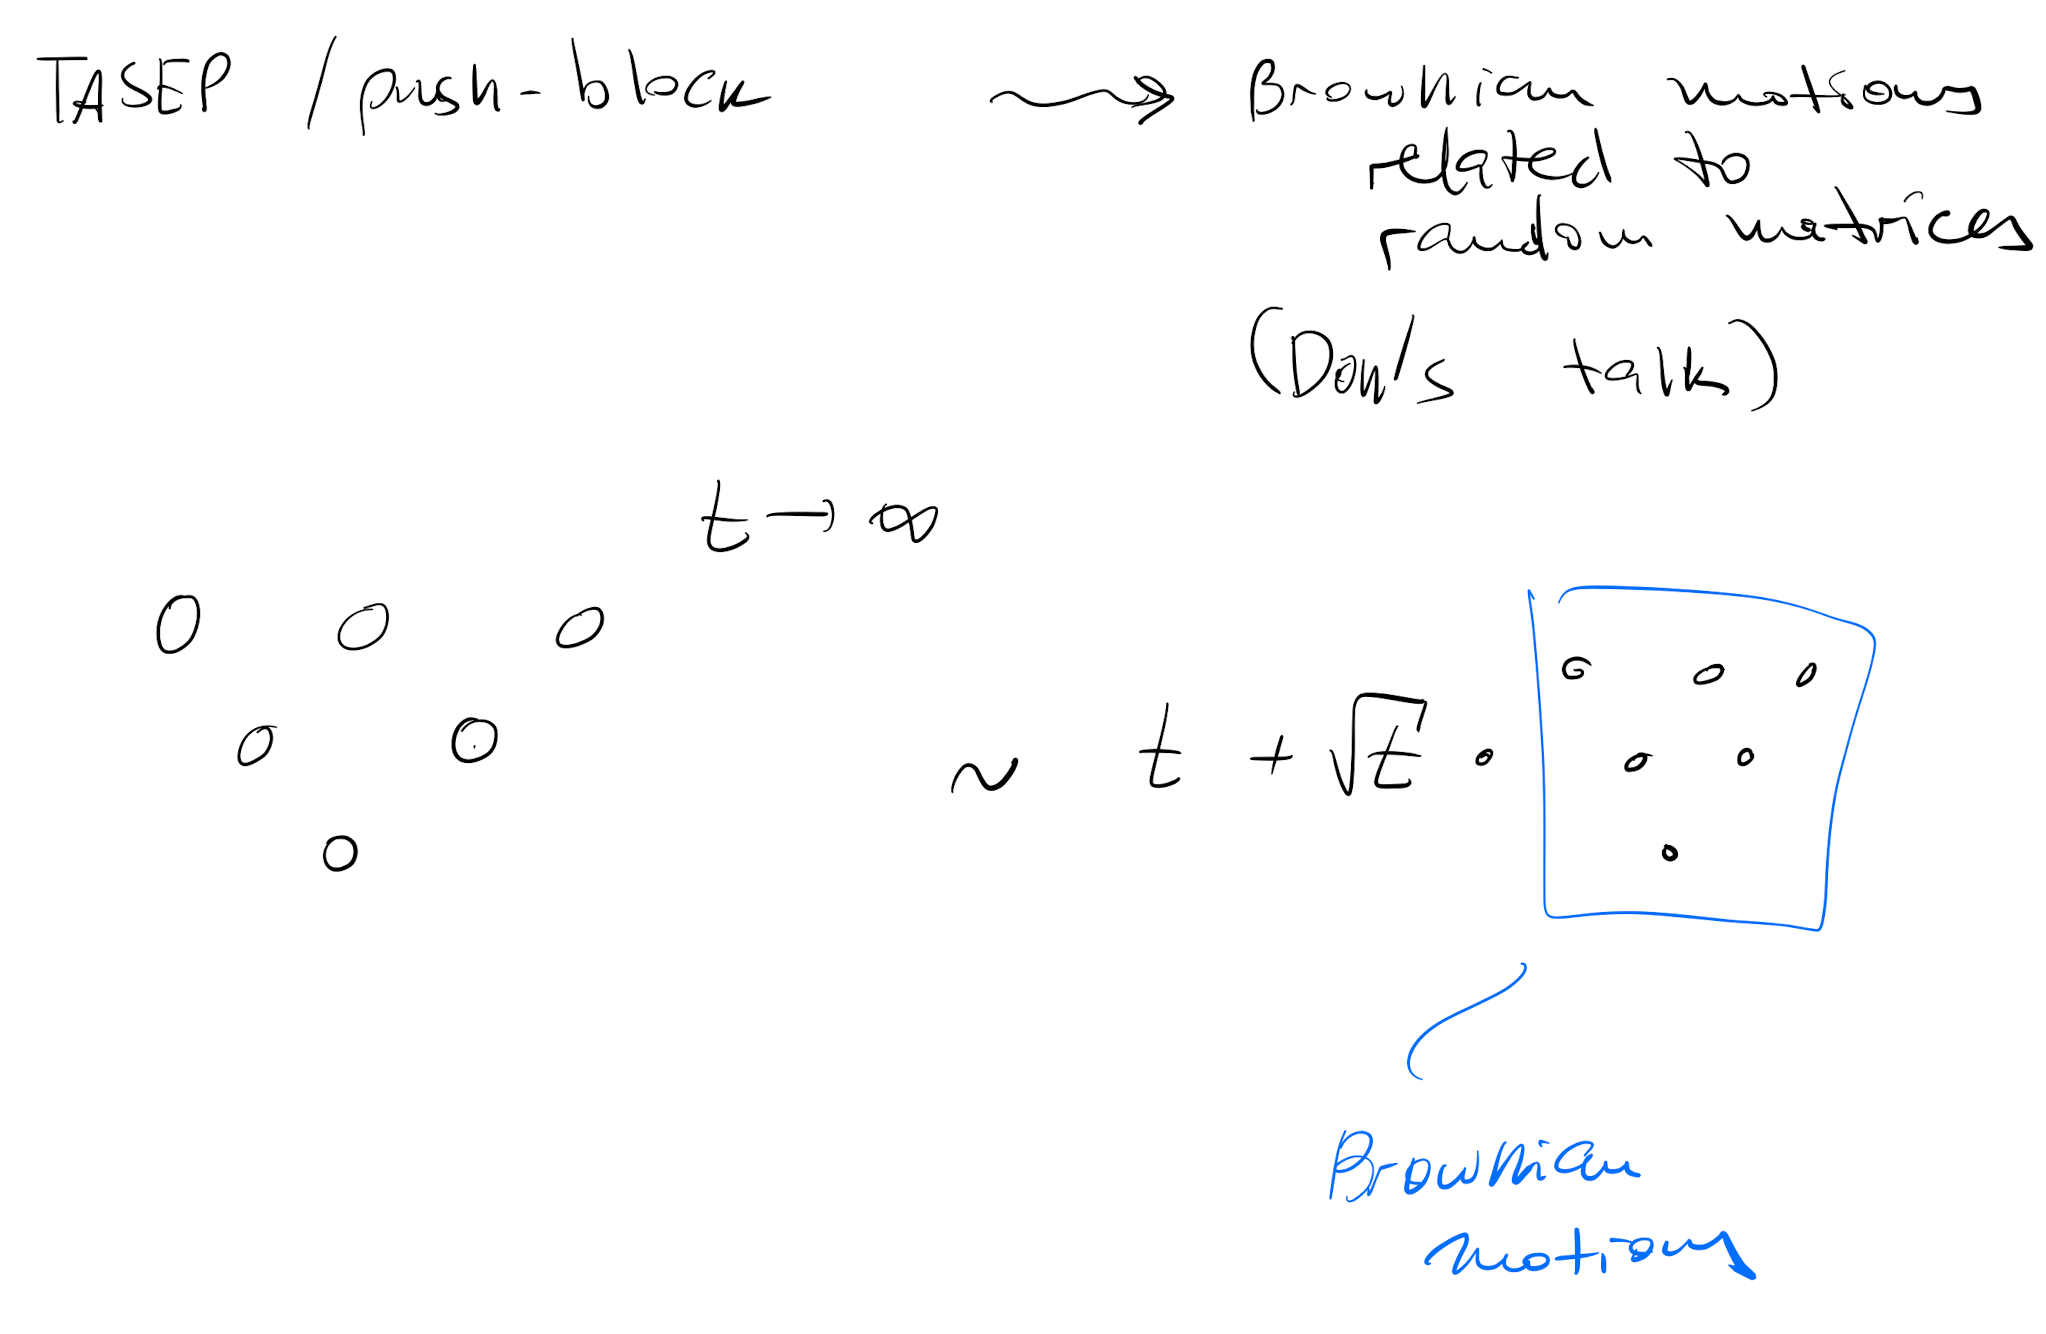 TASEP / push-block ⇝ Brownian motions
related to
random matrices
(Don's talk)
t → ∞
~ t + √t ·
Brownian
motions